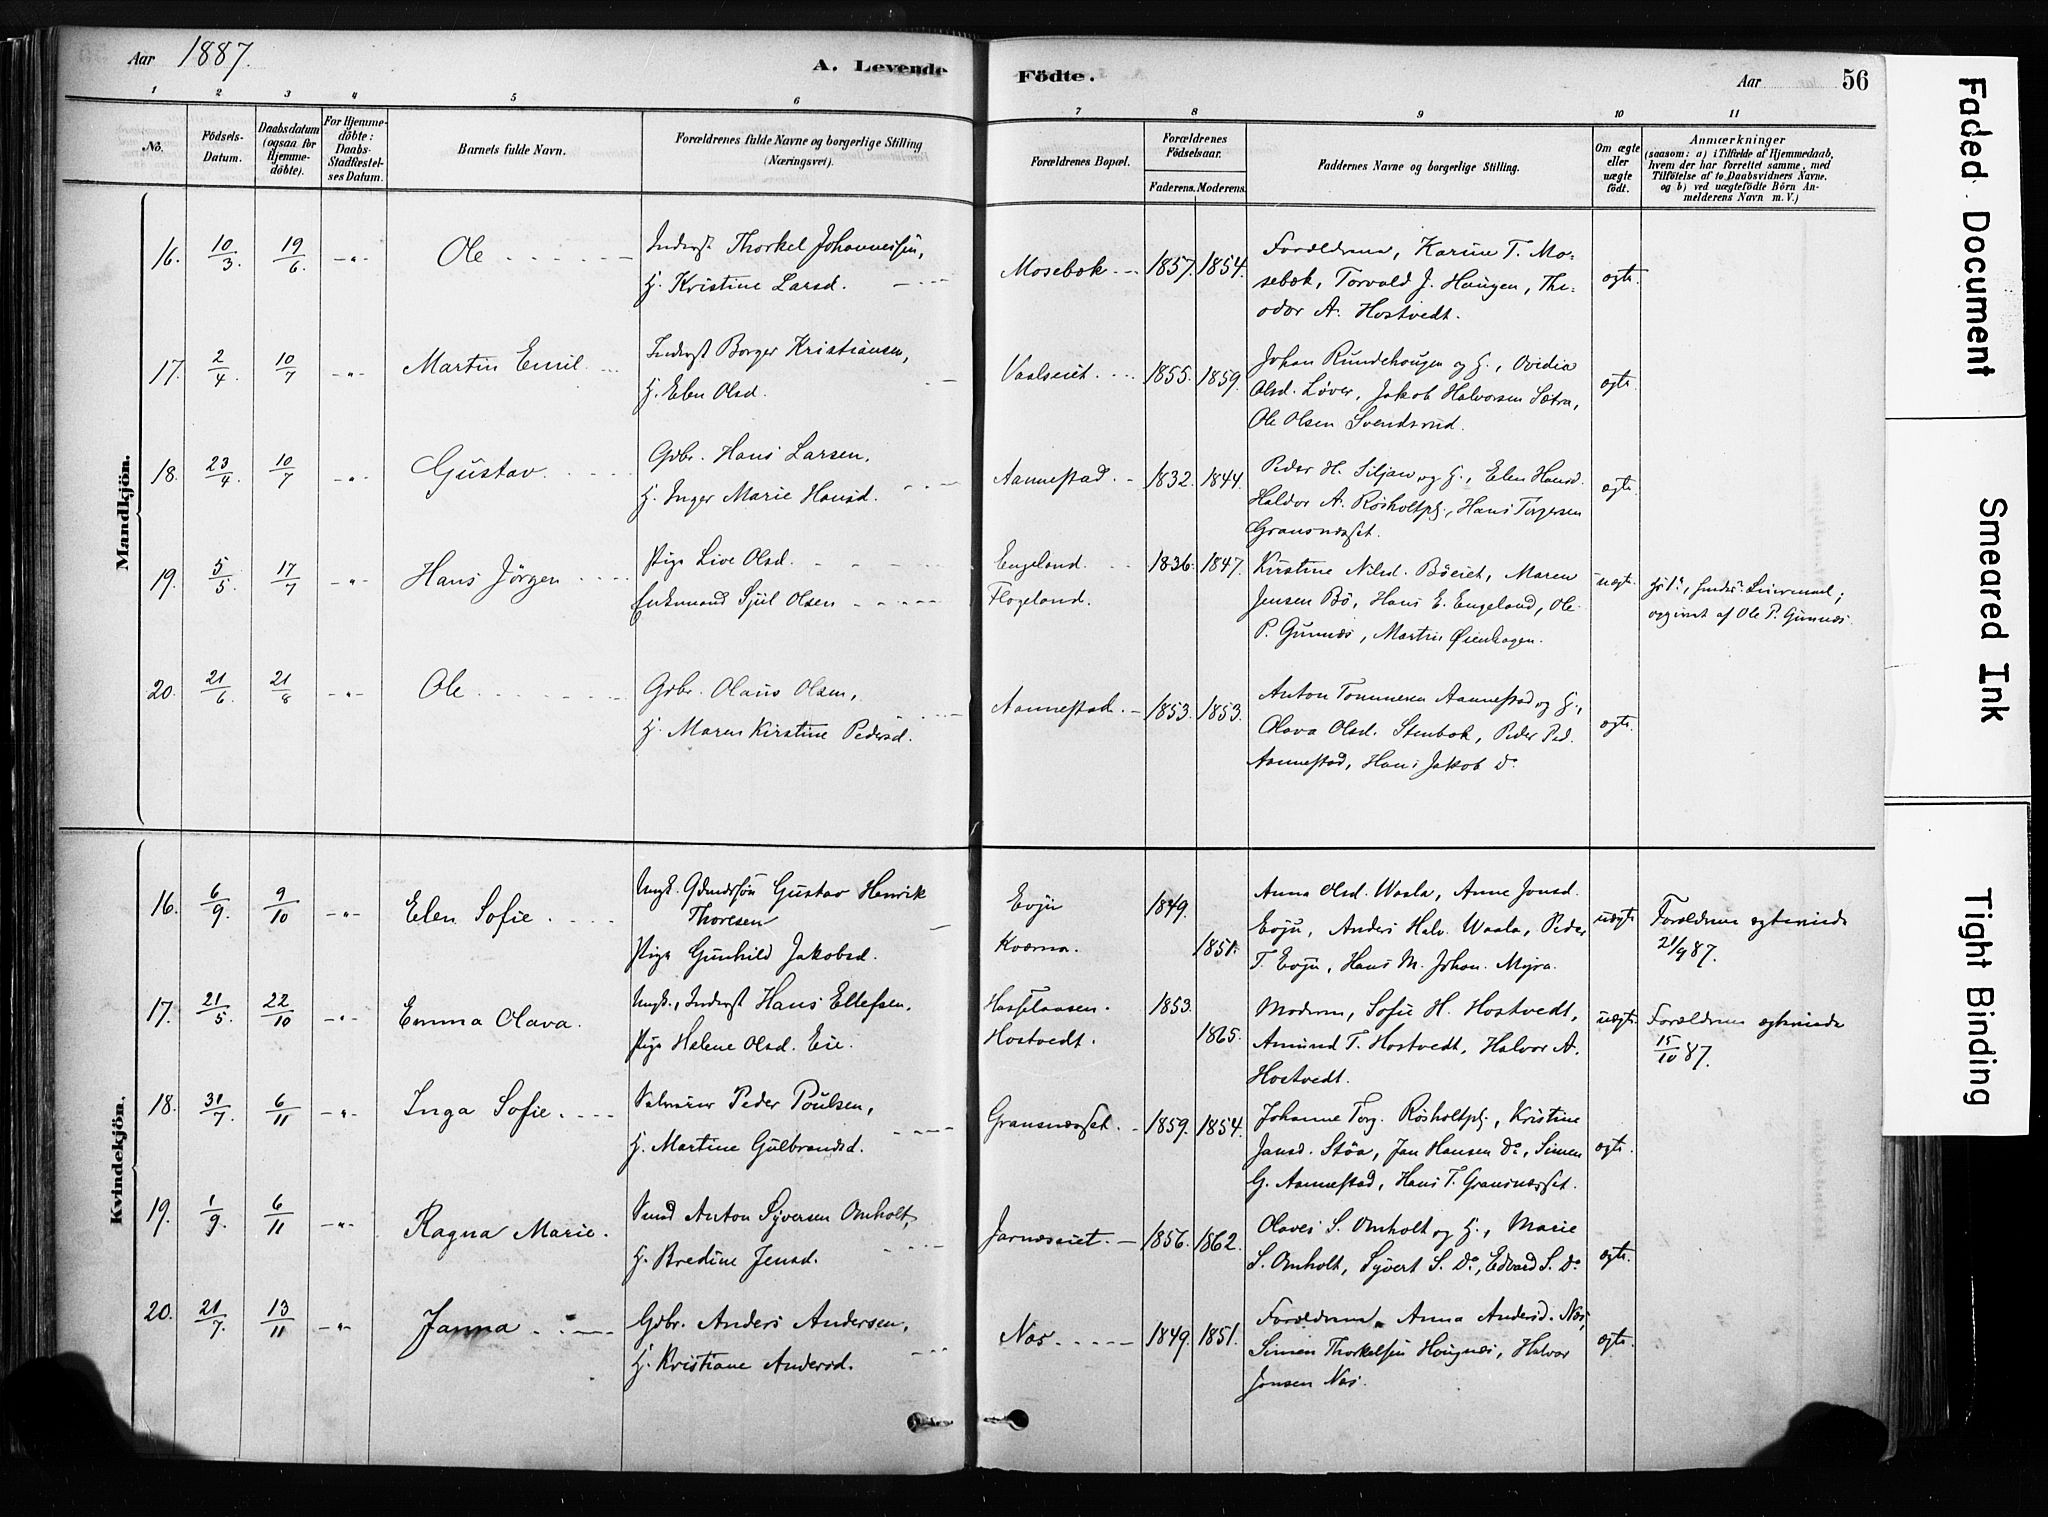 Aar 1887.
A. Levende
Födte.
Aar
56
1 2 3 4 5 6 7 8 9 10 11
No.
Födsels-
Datum.
Daabsdatum
(ogsaa for
Hjemme-
döbte).
For Hjemme-
döbte:
Daabs-
Stadfæstel-
ses Datum.
Barnets fulde Navn.
Forældrenes fulde Navne og borgerlige Stilling
(Næringsvei).
Forældrenes Bopæl.
Forældrenes
Födselsaar.
Faderens. Moderens.
Faddernes Navne og borgerlige Stilling.
Om ægte
eller
uægte
födt.
Anmærkninger
(saasom: a) i Tilfælde af Hjemmedaab,
hvem der har forrettet samme, med
Tilföielse af to Daabsvidners Navne,
og b) ved uægtefödte Börn An-
melderens Navn m. V.)
Mandkjön.
16. 10/3 19/6 -"- Ole
Inderst Thorkel Johannessen,
H. Kristine Larsd.
Mosebok 1857. 1854.
Forældrene, Karine T. Mo-
sebæk, Torvald J. Haugen, The-
odor A. Hostvedt.
ægte.
17. 2/4 10/7 -"- Martin Emil
Inderst Borger Kristiansen,
H. Elen Olsd.
Vaalseiet. 1855. 1859.
Johan Rundehougen og H., Ovidia
Olsd. Løver, Jakob Halvorsen Sætra,
Ole Olsen Svendsrud.
ægte.
18. 23/4 10/7 -"- Gustav
Gdbr. Hans Larsen,
H. Inger Marie Hansd.
Aannestad. 1832. 1844.
Peder H. Siljan og H., Elen Hansd.
Haldor A. Rösholtplj., Hans Torgersen
Gransnæsset.
ægte
19. 5/5 17/7 -"- Hans Jörgen
Pige Live Olsd.
Enkemand Sjul Olsen
Engeland.
Flogeland.
1836. 1847.
Kirstine Nilsd. Böeiet, Maren
Jensen Bö, Hans E. Engeland, Ole
P. Gunnæs, Martin Øienhagen.
uægte.
opgivet af Ole P. Gunnæs.
20. 21/6 21/8 -"- Ole
Gdbr. Olaus Olsen,
H. Maren Kirstine Pedersd.
Aannestad. 1853. 1853.
Anton Tommesen Aannestad og H.,
Olava Olsd. Stenbok, Peder Ped.
Aannestad, Hans Jakob Do.
ægte.
Kvindekjön.
16. 6/9 9/10 -"- Elen Sofie.
Ungk. Gdmdssön Gustav Henrik
Thoresen
Pige Gunhild Jakobsd.
Evju
Kværna.
1849.
1851.
Anna Olsd. Waala, Anne Jonsd.
Evju, Anders Halv. Waala, Peder
T. Evju, Hans M. Johan. Myra.
uægte
Forældrene ægteviede
21/9 87.
17. 21/5 22/10 -"- Emma Olava.
Ungk., Inderst Hans Ellefsen,
Pige Helene Olsd. Eie.
Hasselaasen.
Hostvedt.
1853.
1865.
Moderen, Sofie H. Hostvedt,
Amund T. Hostvedt, Halvor A.
Hostvedt.
uægte.
Forældrene ægteviede
15/10 87.
18. 31/7 6/11 -"- Inga Sofie.
Peder Poulsen,
H. Martine Gulbrandsd.
Gransnæsset. 1859. 1854.
Johanne Torg. Rösholtplj., Kristine
Jansd. Stöa, Jan Hansen Do., Simen
G. Aannestad, Hans T. Gransnæsset.
ægte.
19. 1/9 6/11 -"- Ragna Marie.
Smed Anton Syversen Omholt,
H. Bredine Jensd.
Jarnæseiet. 1856. 1862.
Olaves S. Omholt og H., Marie
S. Omholt, Syvert S. Do., Edvard S. Do.
ægte.
20. 21/7 13/11 -"- Janna
Gdbr. Anders Andersen,
H. Kristiane Andersd.
Næs 1849. 1851.
Forældrene, Anna Andersd. Næs,
Simen Thorkelsen Hougnæs, Halvor
Jonsen Næs.
ægte.
Faded Document
Smeared Ink
Tight Binding